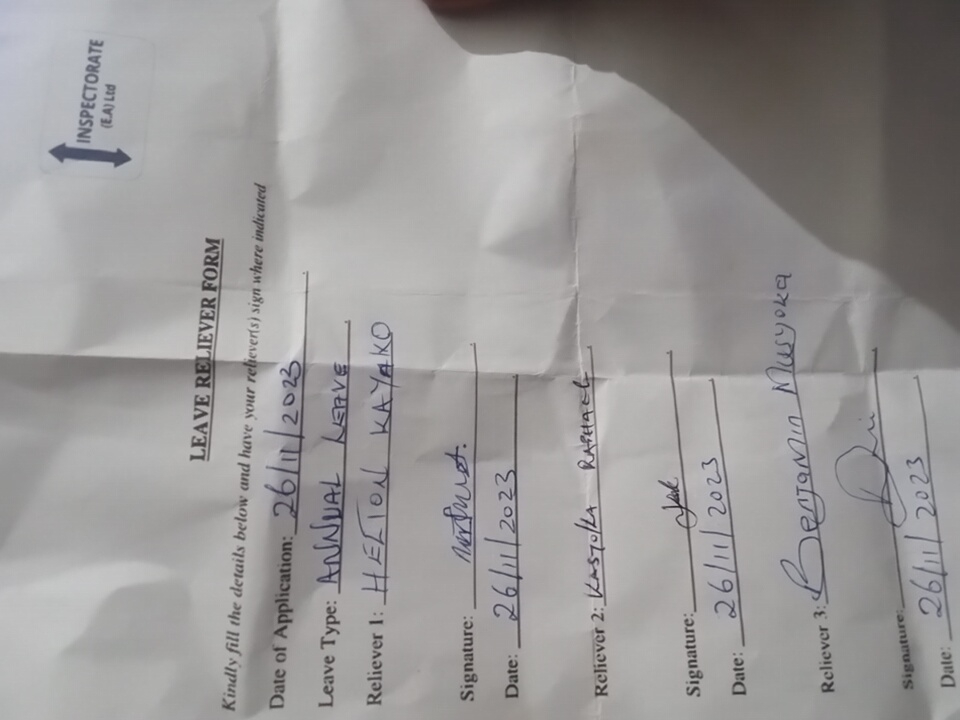 INSPECTORATE
(E.A) Ltd
LEAVE RELIEVER FORM
Kindly fill the details below and have your reliever(s) sign where indicated
Date of Application: 26/11/2023
Leave Type: ANNUAL LEAVE
Reliever 1: HELTON KAYAKO
Signature:
Date: 26/11/2023
Reliever 2: KASYOKA RAPHAEL
Signature:
Date: 26/11/2023
Reliever 3: Benjamin Musyoka
Signature:
Date: 26/11/2023